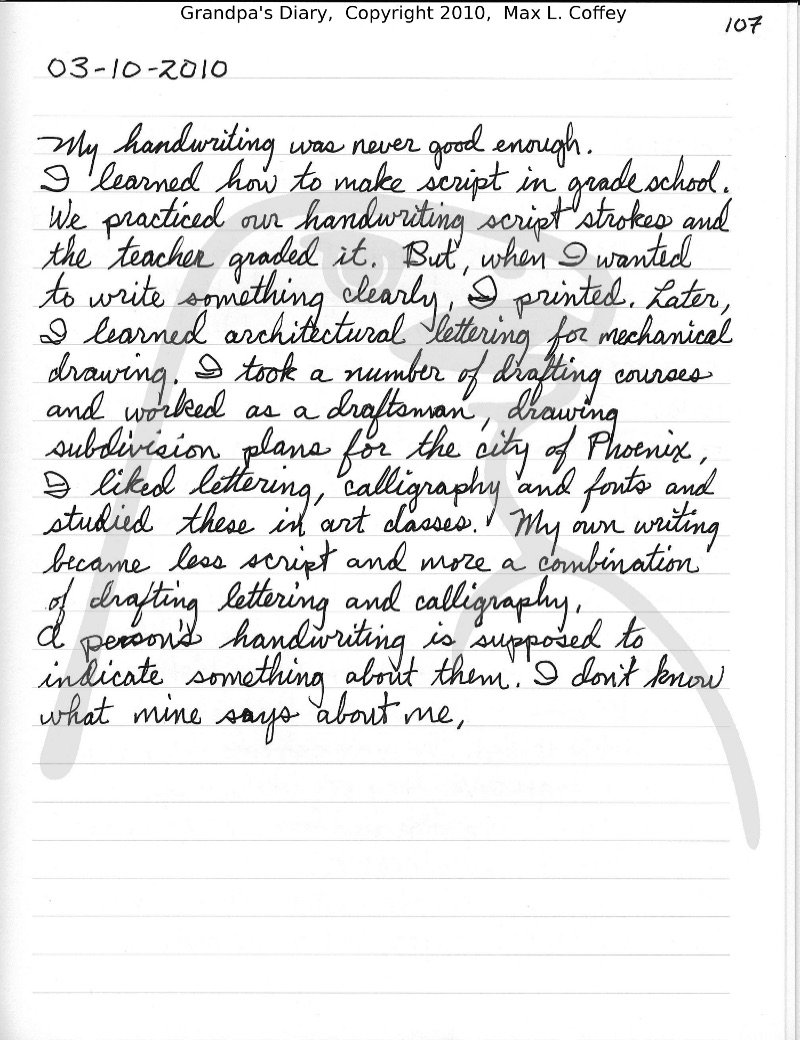 Grandpa's Diary, Copyright 2010, Max L. Coffey
107
03-10-2010
My handwriting was never good enough.
I learned how to make script in grade school.
We practiced our handwriting script strokes and
the teacher graded it. But, when I wanted
to write something clearly, I printed. Later,
I learned architectural lettering for mechanical
drawing. I took a number of drafting courses
and worked as a draftsman, drawing
subdivision plans for the city of Phoenix,
I liked lettering, calligraphy and fonts and
studied these in art classes. My own writing
became less script and more a combination
of drafting lettering and calligraphy.
A person's handwriting is supposed to
indicate something about them. I don't know
what mine says about me,